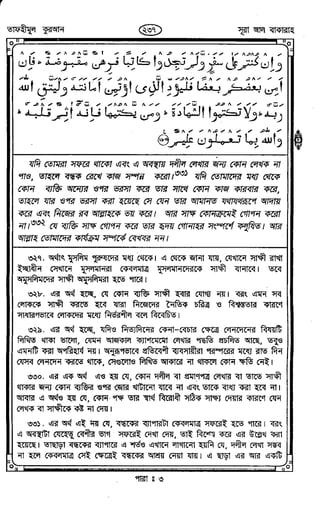 তাফহীমুল কুরআন
২৩৭
সূরা আল বাকারাহ
وَإِنْ كُنْتُمْ عَلَىٰ سَفَرٍ وَلَمْ تَجِدُوا كَاتِبًا فَرِهٰنٌ مَقْبُوضَةٌ ۖ فَإِنْ
أَمِنَ بَعْضُكُمْ بَعْضًا فَلْيُؤَدِّ الَّذِي اؤْتُمِنَ أَمَانَتَهُ وَلْيَتَّقِ اللَّهَ
رَبَّهُ ۗ وَلَا تَكْتُمُوا الشَّهَادَةَ ۚ وَمَنْ يَكْتُمْهَا فَإِنَّهُ آثِمٌ قَلْبُهُ ۗ
وَاللَّهُ بِمَا تَعْمَلُونَ عَلِيمٌ
যদি তোমরা সফরে থাকো এবং এ অবস্থায় দলীল লেখার জন্য কোন লেখক না
পাও, তাহলে বন্ধক রেখে কাজ সম্পন্ন করো।৩৩১ যদি তোমাদের মধ্য থেকে
কোন ব্যক্তি অন্যের ওপর ভরসা করে তার সাথে কোন কাজ কারবার করে,
তাহলে যার ওপর ভরসা করা হয়েছে সে যেন তার আমানত যথাযথরূপে আদায়
করে এবং নিজের রব আল্লাহকে ভয় করে। আর সাক্ষ্য কোনক্রমেই গোপন করো
না।৩৩২ যে ব্যক্তি সাক্ষ্য গোপন করে তার হৃদয় গোনাহর সংস্পর্শে কলুষিত। আর
আল্লাহ তোমাদের কার্যক্রম সম্পর্কে বেখবর নন।
৩২৭. অর্থাৎ মুসলিম পুরুষদের মধ্য থেকে। এ থেকে জানা যায়, যেখানে সাক্ষী রাখা
ইচ্ছাধীন সেখানে মুসলমানরা কেবলমাত্র মুসলমানদেরকে সাক্ষী বানাবে। তবে
অমুসলিমদের সাক্ষী অমুসলিমরা হতে পারে।
৩২৮. এর অর্থ হচ্ছে, যে কোন ব্যক্তি সাক্ষী হবার যোগ্য নয়। বরং এমন সব
লোককে সাক্ষী করতে হবে যারা নিজেদের নৈতিক চরিত্র ও বিশ্বস্ততার কারণে
সাধারণভাবে লোকদের মধ্যে নির্ভরশীল বলে বিবেচিত।
৩২৯. এর অর্থ হচ্ছে, যদিও নিত্যদিনের কেনা-বেচার ক্ষেত্রে লেনদেনের বিষয়টি
লিখিত থাকা ভালো, যেমন আজকাল ক্যাশমেমো লেখার পদ্ধতি প্রচলিত আছে, তবুও
এমনটি করা অপরিহার্য নয়। অনুরূপভাবে প্রতিবেশী ব্যবসায়ীরা পরস্পরের মধ্যে রাত দিন
যেসব লেনদেন করতে থাকে, সেগুলোও লিখিত আকারে না থাকলে কোন ক্ষতি নেই।
৩৩০. এর এক অর্থ এও হয় যে, কোন দলীল বা প্রমাণপত্র লেখার বা তাতে সাক্ষী
থাকার জন্য কোন ব্যক্তির ওপর জোর খাটানো যাবে না এবং তাকে বাধ্য করা হবে না।
আবার এ অর্থও হয় যে, কোন পক্ষ তার স্বার্থ বিরোধী সঠিক সাক্ষ্য দেয়ার কারণে যেন
লেখক বা সাক্ষীকে কষ্ট না দেয়।
৩৩১. এর অর্থ এই নয় যে, বন্ধকের ব্যাপারটা কেবলমাত্র সফরেই হতে পারে। বরং
এ অবস্থাটা যেহেতু বেশীর ভাগ সফরেই দেখা দেয়, তাই বিশেষ করে এর উল্লেখ করা
হয়েছে। তাছাড়া বন্ধকের ব্যাপারে এ শর্তও এখানে লাগানো হয়নি যে, দলীল লেখা সম্ভব
না হলে কেবলমাত্র সেই ক্ষেত্রেই বন্ধকের আশ্রয় নেয়া যায়। এ ছাড়া এর আর একটি
পারা ঃ ৩